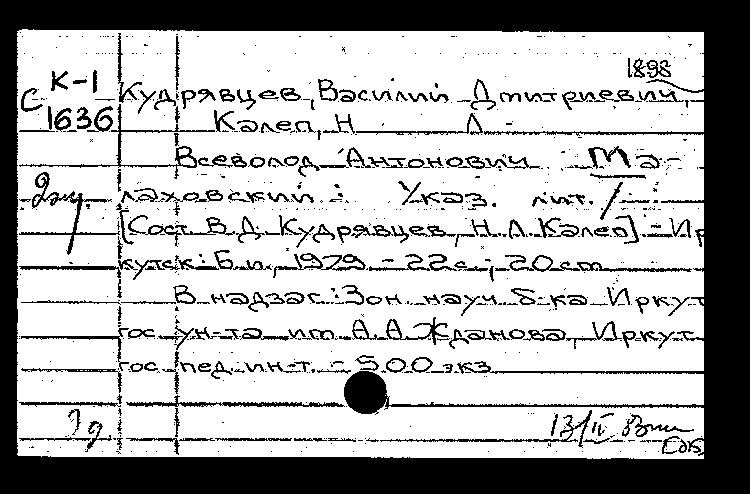 1898
С К-1 Кудрявцев, Василий Дмитриевич,
1636 Калеп, Н Л
Всеволод Антонович Ма-
лаховский : Указ. лит. /
[Сост. В.Д. Кудрявцев, Н.Л. Калеп] - Ир
кутск: Б.и., 1979. - 22 с.; 20 cm
В надзаг: Зон. науч. б-ка Иркут
гос ун-та им А.А. Жданова, Иркут
гос пед. ин-т. - 500 экз
13/IV